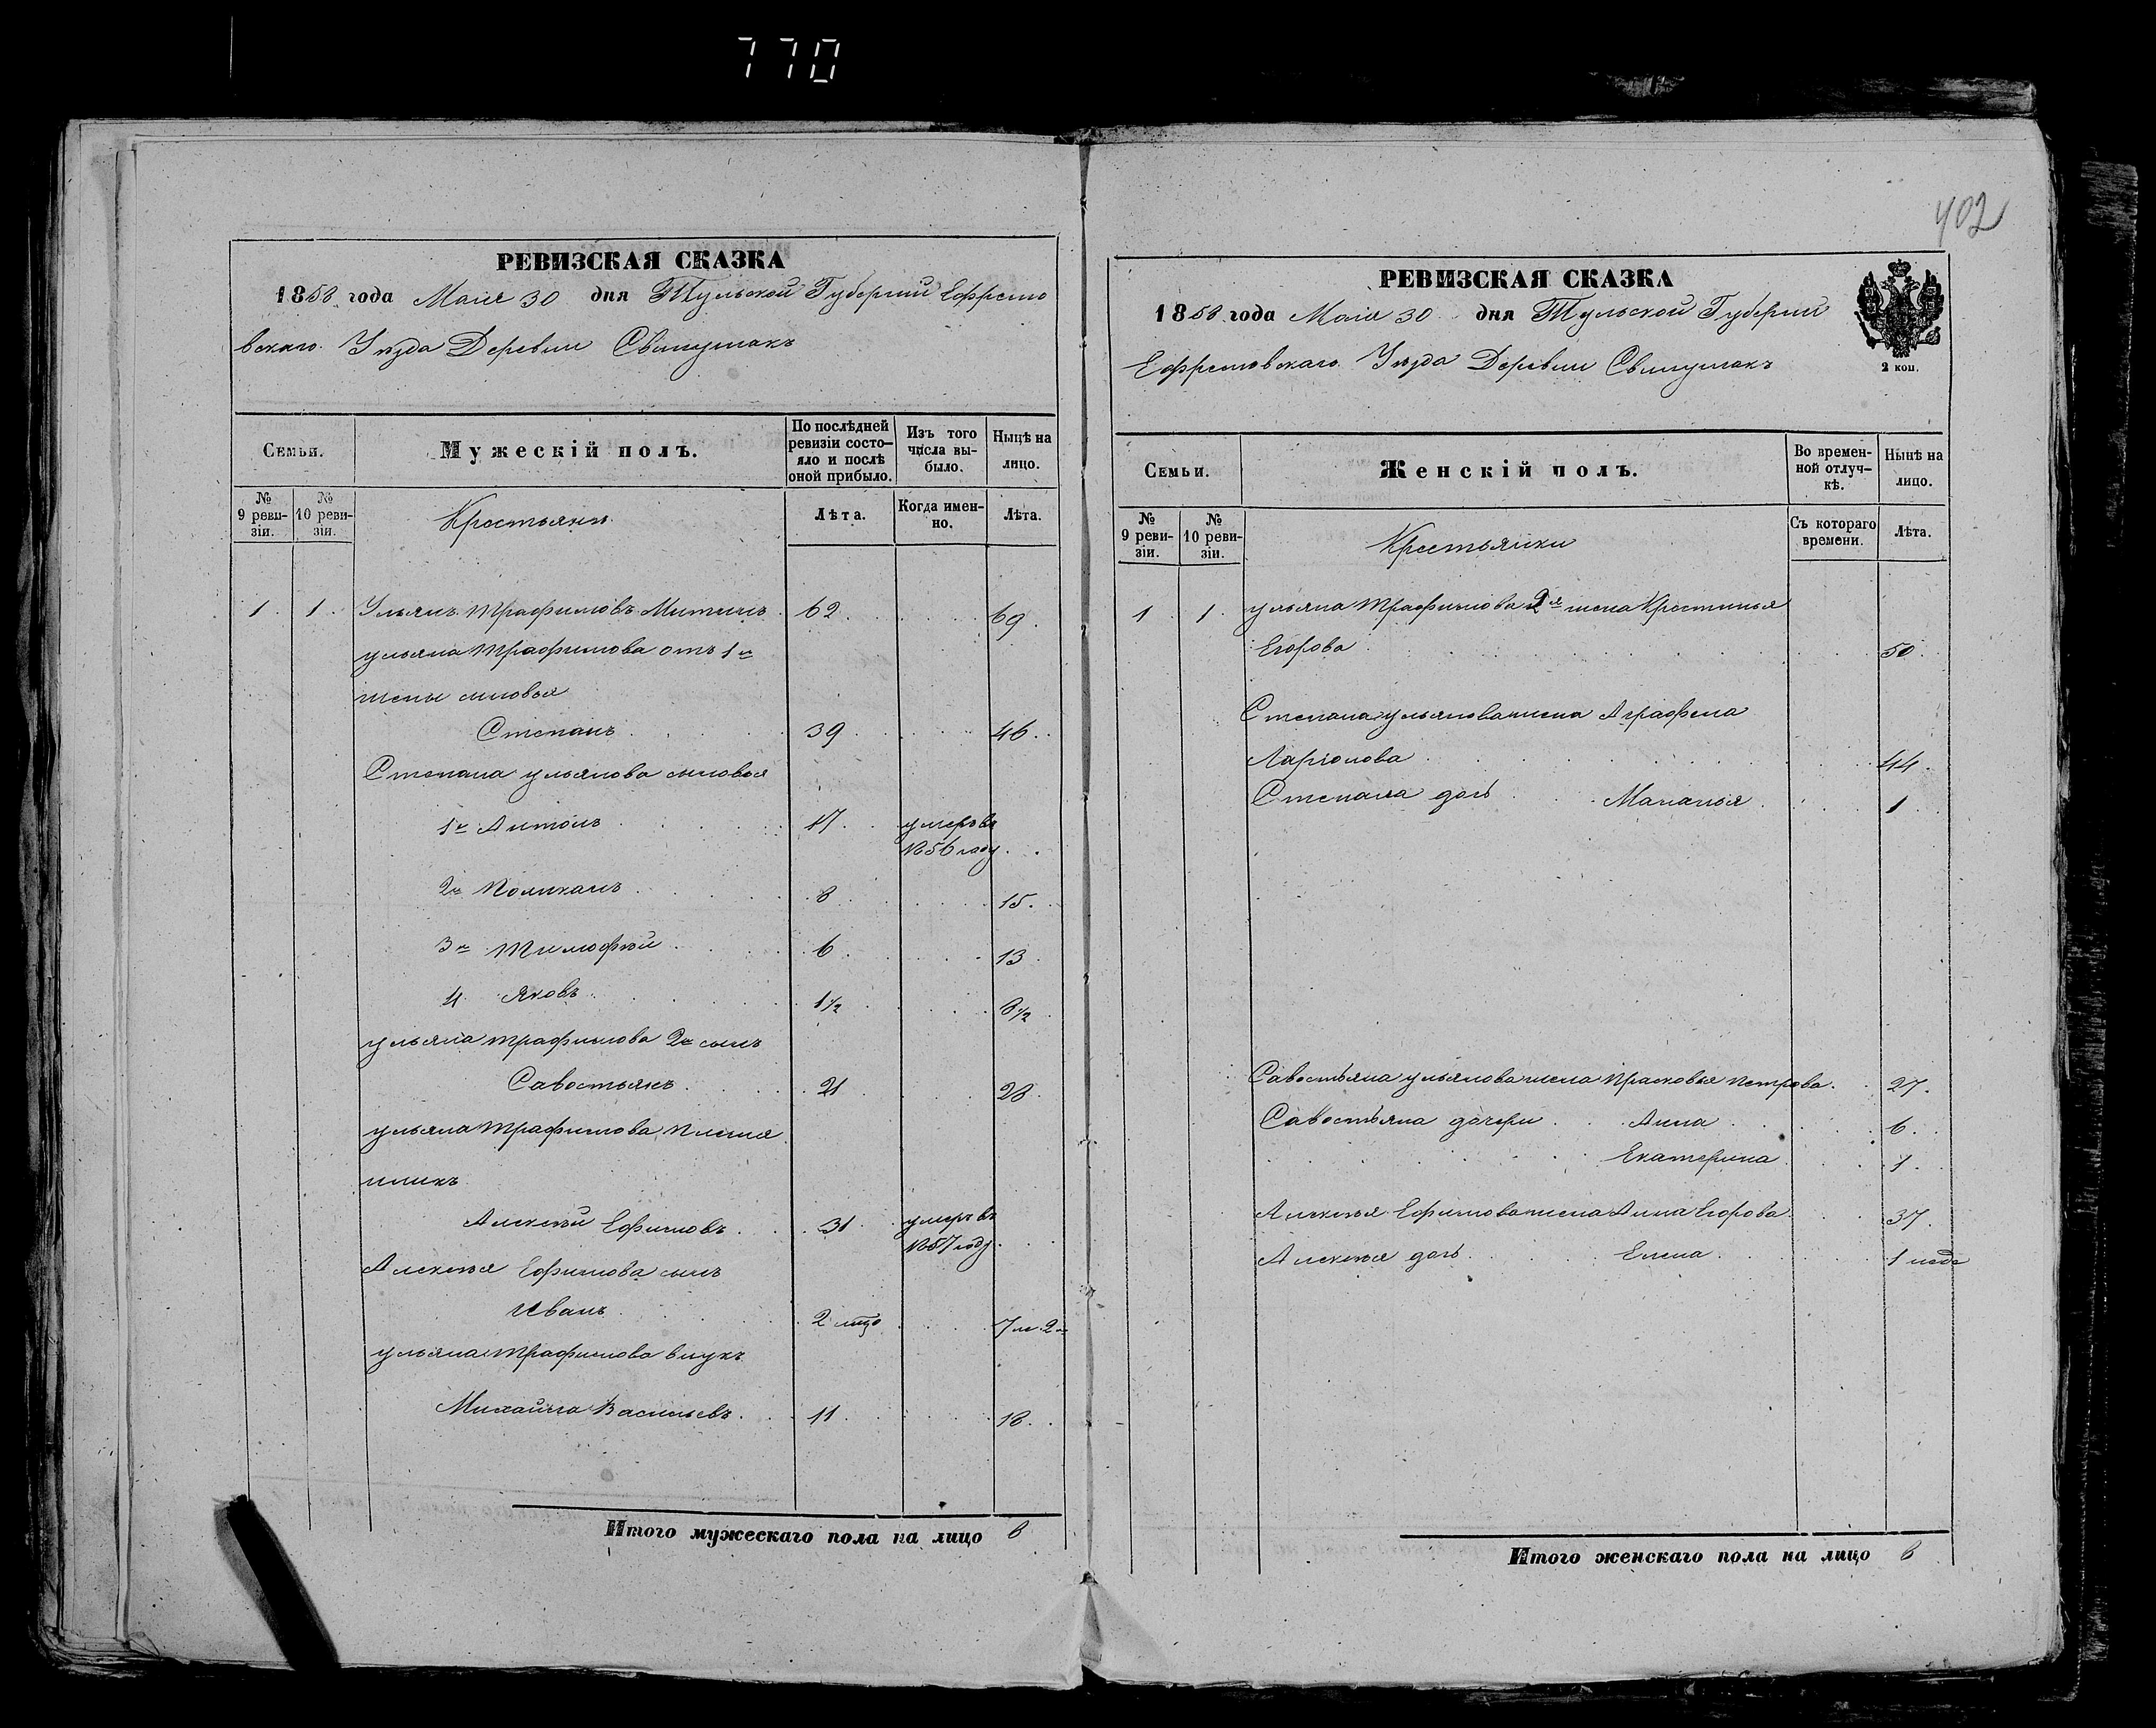 770
402
РЕВИЗСКАЯ СКАЗКА
1858 года Маия 30 дня Тульской Губернии Ефремо
вскаго Уѣзда Деревни
Семьи.
Мужескій полъ.
По послѣдней ревизіи состо—яло и послѣ оной прибыло.
Изъ того числа вы-было.
Нынѣ на лицо.
№ 9 реви-зіи.
№ 10 реви-зіи.
Крестьяне
Лѣта.
Когда имен-но.
Лѣта.
1 1 Ульянъ Трафимовъ Митинъ 62 69
ульяна Трафимова отъ 1й
жены сыновья
Степанъ 39 46
Степана ульянова сыновья
1й Антонъ 17 умеръ въ
1856 году
2й 8 15
3й Тимофѣй 6 13
4 Яковъ 1½ 8½
ульяна трафимова 2й сынъ
Савостьянъ 21 28
ульяна Трафимова племя
нникъ
Алексѣй Ефимовъ 31 умеръ въ
1857 году
Алексѣя Ефимова сынъ
Иванъ 2
ульяна Трафимова внукъ
Михайла Васильевъ 11 18
Итого мужескаго пола на лицо 8
РЕВИЗСКАЯ СКАЗКА
1858 года Маия 30 дня Тульской Губернии
Ефремовскаго Уѣзда Деревни
2 коп.
Семьи.
Женскій полъ.
Во времен-ной отлуч-кѣ.
Нынѣ на лицо.
№ 9 реви-зіи.
№ 10 реви-зіи.
Крестьянки
Съ котораго времени.
Лѣта.
1 1 ульяна Трафимова 2я жена Крестинья
Егорова 50
Степана ульянова жена Аграфена
Ларіонова 44
Степана дочь Маланья 1
Савостьяна ульянова жена Прасковья Петрова 27
Савостьяна дочери Анна 6
Екатерина 1
Алексѣя Ефимова жена Анна Егорова 37
Алексѣя дочь Елена 1
Итого женскаго пола на лицо 8